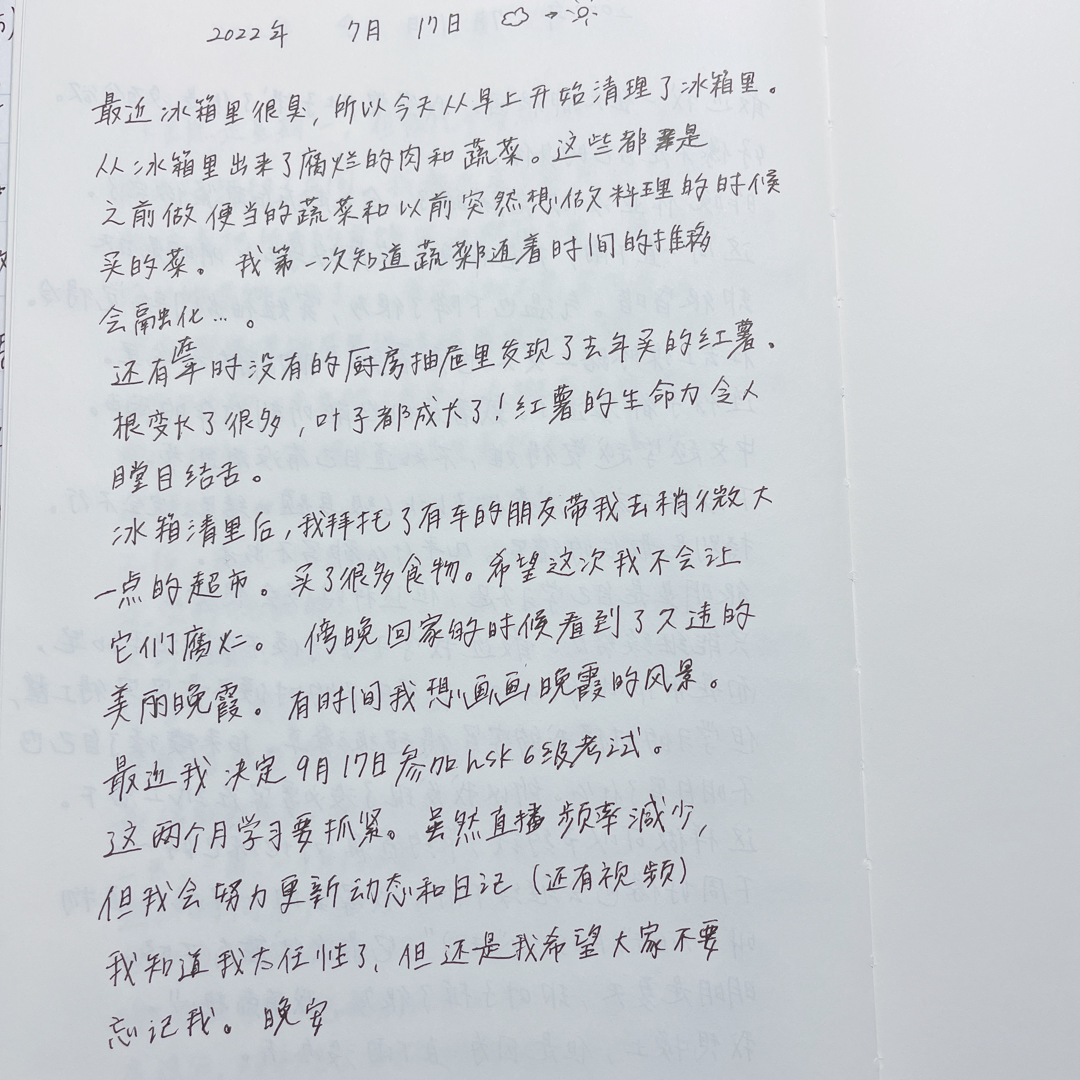 2022年 7月 17日
最近冰箱里很臭，所以今天从早上开始清理了冰箱里。
从冰箱里出来了腐烂的肉和蔬菜。这些都是
之前做便当的蔬菜和以前突然想做料理的时候
买的菜。我第一次知道蔬菜随着时间的推移
会融化…。
还有平时没有的厨房抽屉里发现了去年买的红薯。
根变长了很多，叶子都成长了！红薯的生命力令人
瞠目结舌。
冰箱清里后，我拜托了有车的朋友带我去稍微大
一点的超市。买了很多食物。希望这次我不会让
它们腐烂。傍晚回家的时候看到了久违的
美丽晚霞。有时间我想画画晚霞的风景。
最近我决定9月17日参加hsk6级考试。
这两个月学习要抓紧。虽然直播频率减少，
但我会努力更新动态和日记（还有视频）
我知道我太任性了，但还是我希望大家不要
忘记我。晚安